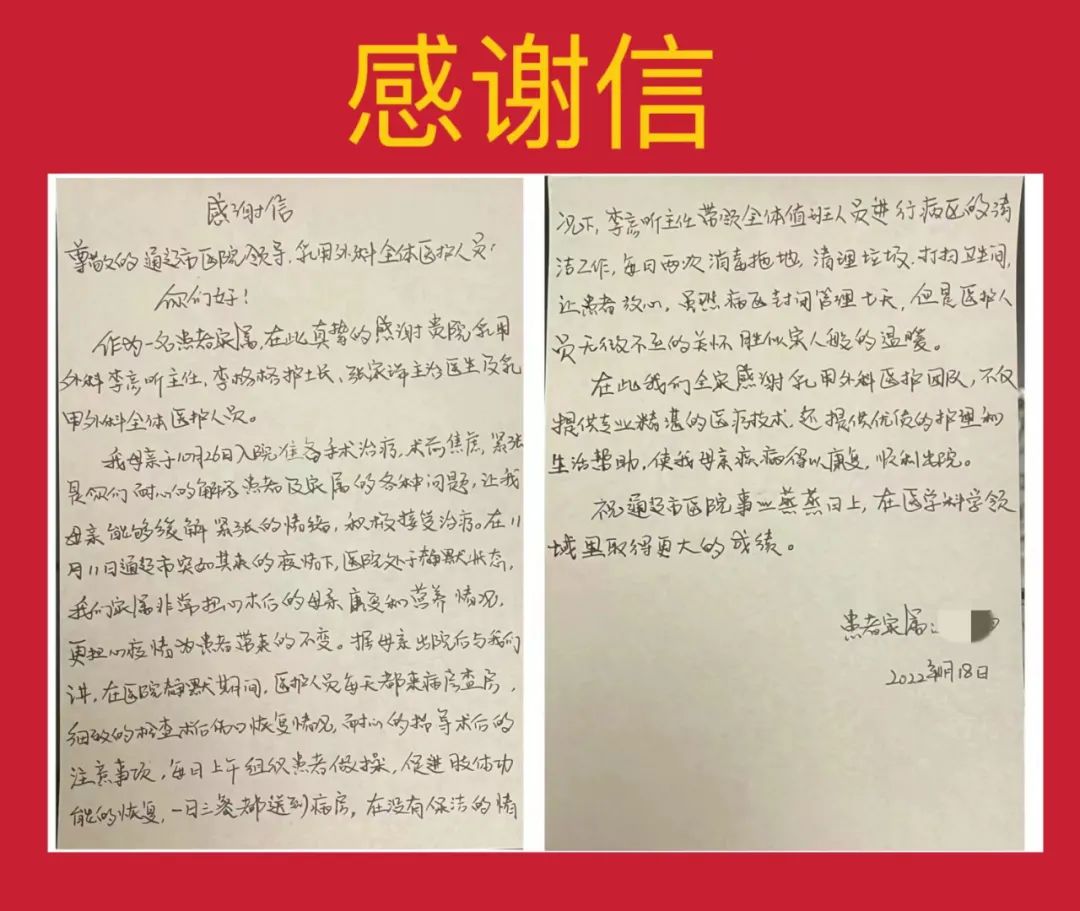 感谢信
感谢信
尊敬的通辽市医院领导、乳甲外科全体医护人员:
你们好!
作为一名患者家属,在此真挚的感谢贵院乳甲
外科李彦昕主任,李格格护士长、张宗泽主治医生及乳
甲外科全体医护人员。
我母亲于10月26日入院准备手术治疗,术前焦虑,紧张
是你们耐心的解释患者及家属的各种问题,让我
母亲能够缓解紧张的情绪,积极接受治疗。在11
月11日通辽市突如其来的疫情下,医院处于静默状态,
我们家属非常担心术后的母亲康复和营养情况,
更担心疫情为患者带来的不变。据母亲出院后与我们
讲,在医院静默期间,医护人员每天都来病房查房,
细致的检查术后伤口恢复情况,耐心的指导术后的
注意事项,每日上午组织患者做操,促进肢体功
能的恢复,一日三餐都送到病房,在没有保洁的情
况下,李彦昕主任带领全体值班人员进行病区的清
洁工作,每日两次消毒拖地,清理垃圾,打扫卫生间,
让患者放心,虽然病区封闭管理七天,但是医护人
员无微不至的关怀胜似家人般的温暖。
在此我们全家感谢乳甲外科医护团队,不仅
提供专业精湛的医疗技术,还提供优质的护理和
生活帮助,使我母亲疾病得以康复,顺利出院。
祝通辽市医院事业蒸蒸日上,在医学科学领
域里取得更大的成绩。
患者家属:
2022年11月18日